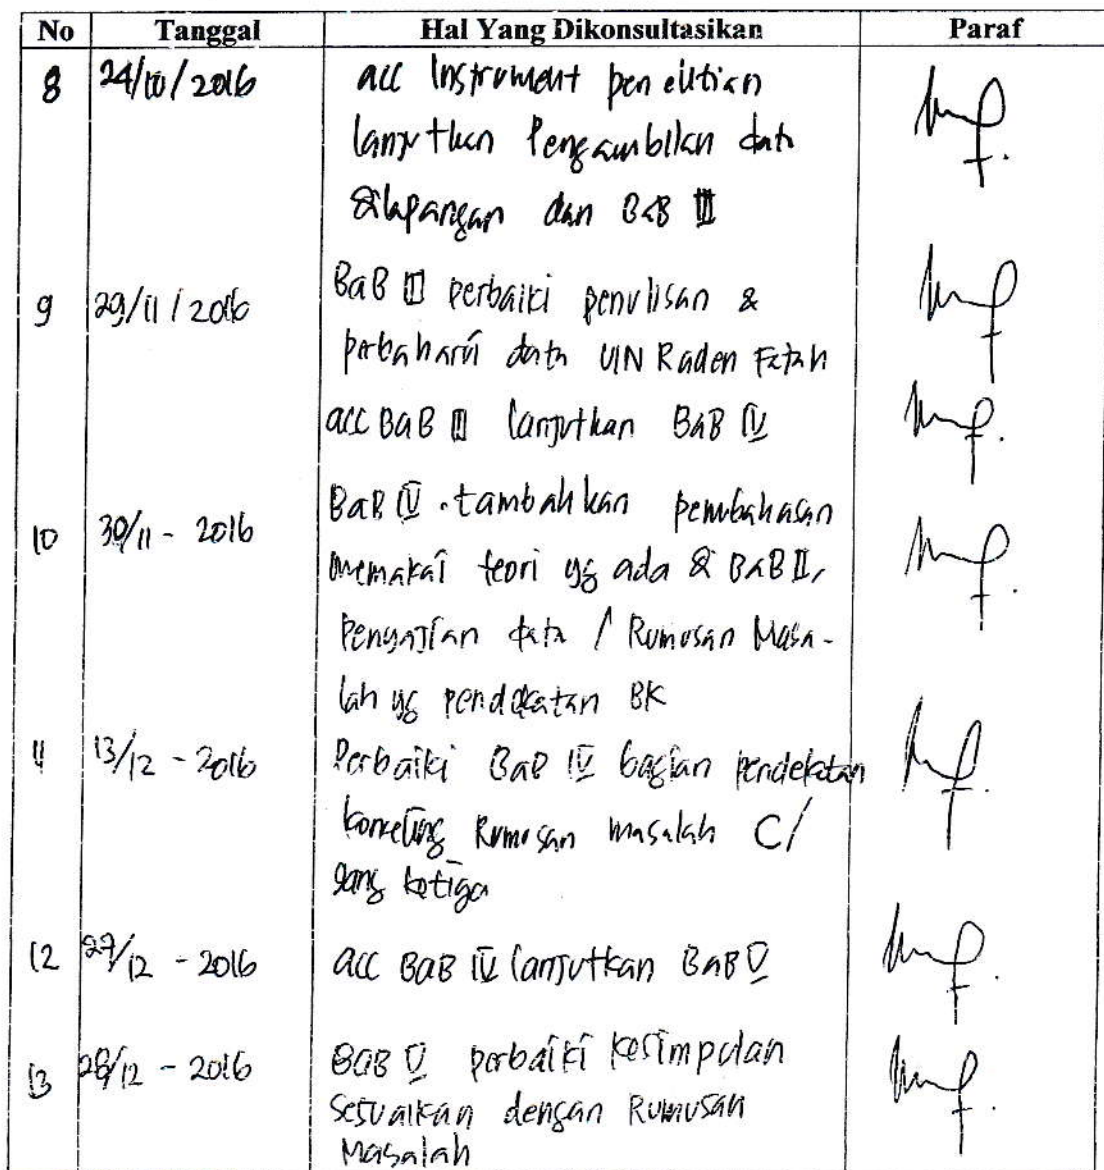 No Tanggal Hal Yang Dikonsultasikan Paraf
8 24/10/2016 acc Instrument penelitian
lanjutkan Pengambilan data
dilapangan dan BaB III
9 29/11/2016 BaB III perbaiki penulisan &
perbaharui data UIN Raden Fatah
acc BaB III lanjutkan BaB IV
10 30/11 - 2016 BaB IV . tambahkan pembahasan
memakai teori yg ada di BaB II,
Penyajian data / Rumusan Masa-
lah yg pendekatan BK
11 13/12 - 2016 Perbaiki BaB IV bagian pendekatan
konseling Rumusan masalah C/
yang ketiga
12 27/12 - 2016 acc BaB IV lanjutkan BaB V
13 28/12 - 2016 BaB V perbaiki kesimpulan
sesuaikan dengan Rumusan
Masalah